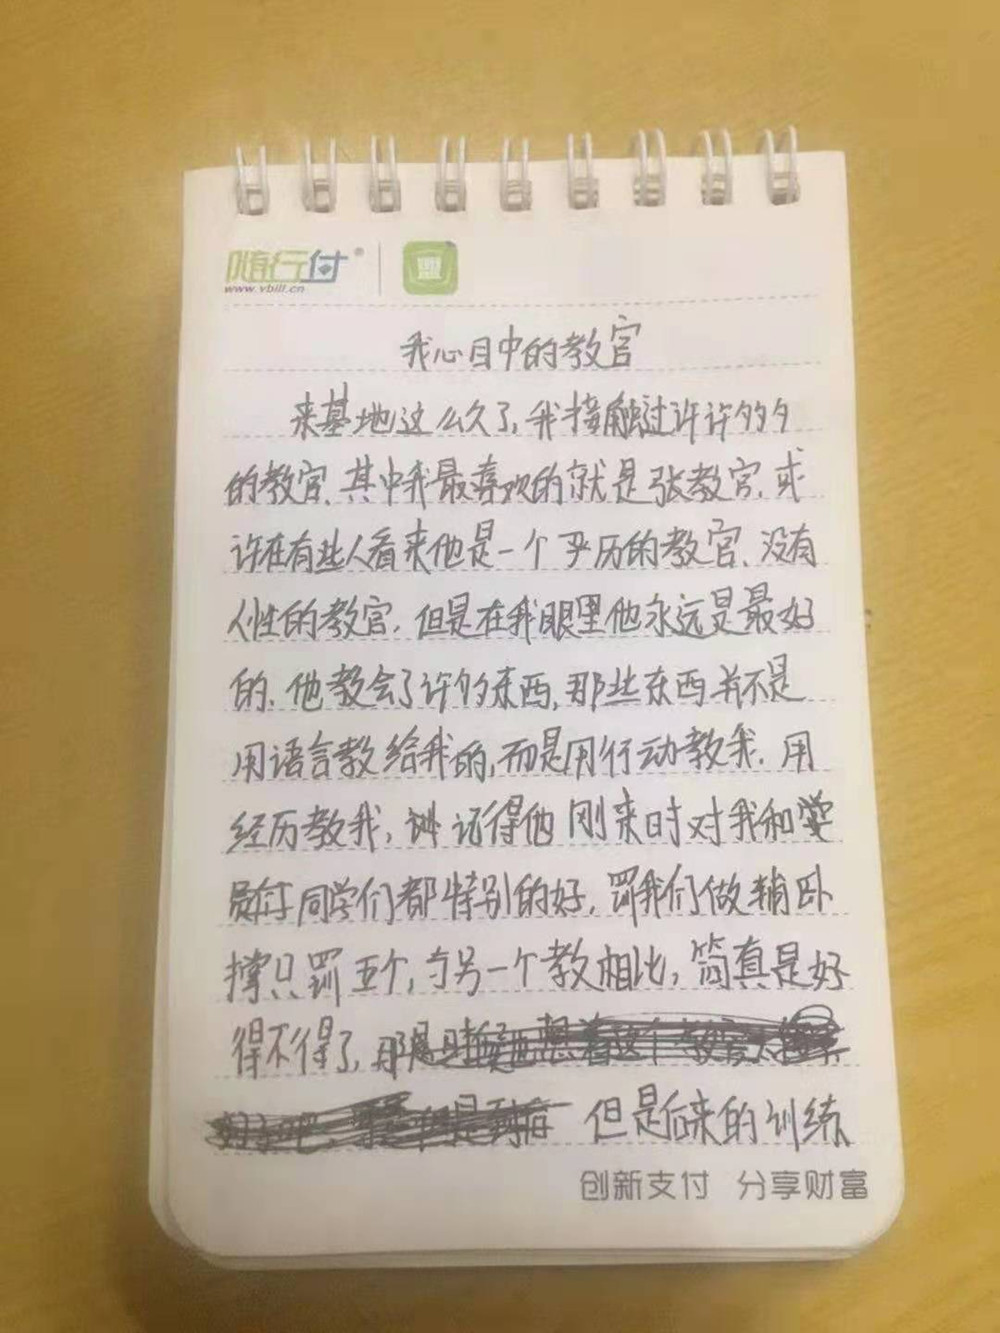 随行付®
www.vbill.cn
我心目中的教官
来基地这么久了,我接触过许许多多
的教官、其中我最喜欢的就是张教官、或
许在有些人看来他是一个严历的教官、没有
人性的教官、但是在我眼里他永远是最好
的、他教会了许多东西,那些东西并不是
用语言教给我的,而是用行动教我、用
经历教我,记得他刚来时对我和
同学们都特别的好,罚我们做俯卧
撑只罚五个,与另一个教相比,简真是好
得不得了,那
但是后来的训练
创新支付 分享财富